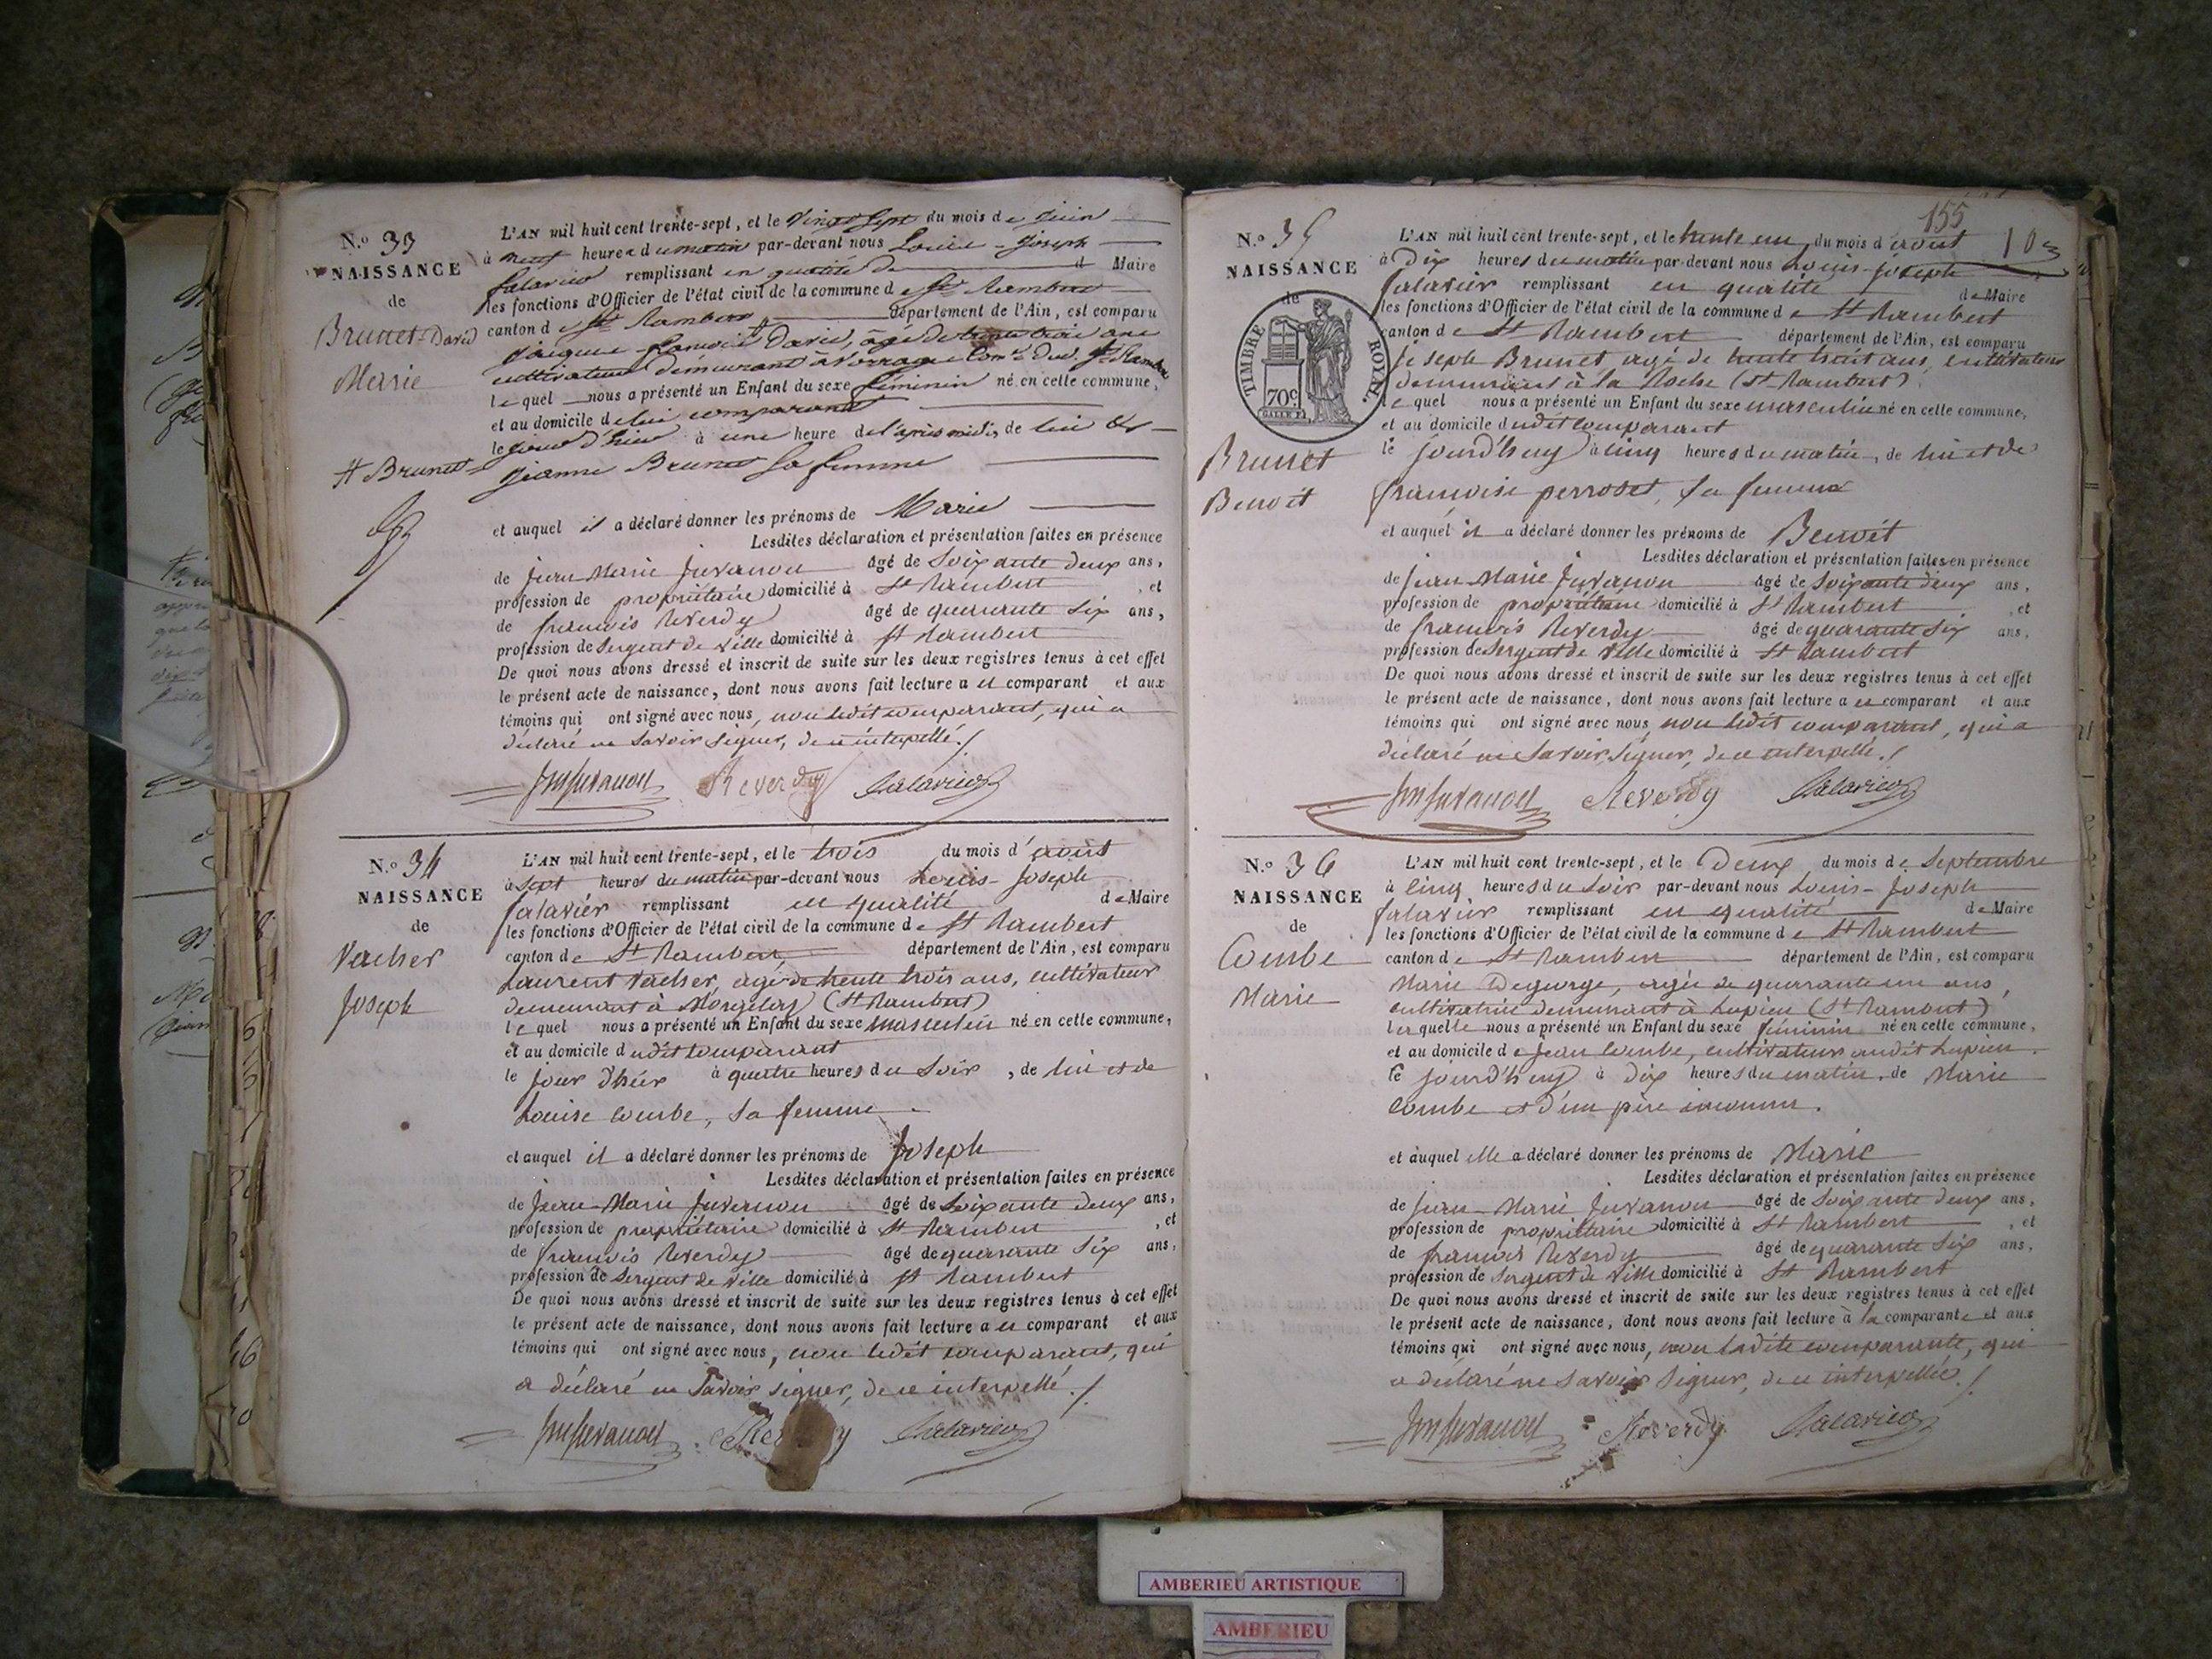 N.o 33
NAISSANCE
de
Brunet-David
Marie
# Brunet
L'AN mil huit cent trente-sept, et le vingt sept du mois de juin
à neuf heures du matin par-devant nous Louis-Joseph
Salavier remplissant en qualité de d Maire
les fonctions d'Officier de l'état civil de la commune de St Rambert
canton de St Rambert, département de l'Ain, est comparu
David, âgé de trente trois ans
cultivateur demeurant à Vorrage Com.e dud. St Rambert
lequel nous a présenté un Enfant du sexe féminin né en cette commune,
et au domicile de lui comparant
le jour d'hier à une heure de l'après midi, de lui et
Jeanne Brunet sa femme
et auquel il a déclaré donner les prénoms de Marie
Lesdites déclaration et présentation faites en présence
de Jean Marie Juvanon âgé de Soixante deux ans,
profession de propriétaire domicilié à St Rambert, et
de françois Reverdy âgé de quarante six ans,
profession de Sergent de ville domicilié à St Rambert
De quoi nous avons dressé et inscrit de suite sur les deux registres tenus à cet effet
le présent acte de naissance, dont nous avons fait lecture au comparant et aux
témoins qui ont signé avec nous, non ledit comparant, qui a
déclaré ne savoir signer, de ce interpellé./.
Jm Juvanon Reverdy Salavier
N.o 34
NAISSANCE
de
Vacher
Joseph
L'AN mil huit cent trente-sept, et le trois du mois d'août
à sept heures du matin par-devant nous Louis-Joseph
Salavier remplissant en qualité de Maire
les fonctions d'Officier de l'état civil de la commune de St Rambert
canton de St Rambert, département de l'Ain, est comparu
Laurent Vacher, agé de trente trois ans, cultivateur
demeurant à Morgelas (St Rambert)
lequel nous a présenté un Enfant du sexe masculin né en cette commune,
et au domicile dudit comparant
le jour d'hier à quatre heures du soir, de lui et de
Louise Combe, sa femme.
et auquel il a déclaré donner les prénoms de Joseph
Lesdites déclaration et présentation faites en présence
de Jean-Marie Juvanon âgé de Soixante deux ans,
profession de propriétaire domicilié à St Rambert, et
de françois Reverdy âgé de quarante six ans,
profession de Sergent de ville domicilié à St Rambert
De quoi nous avons dressé et inscrit de suite sur les deux registres tenus à cet effet
le présent acte de naissance, dont nous avons fait lecture au comparant et aux
témoins qui ont signé avec nous, non ledit comparant, qui
a déclaré ne savoir signer, de ce interpellé./.
Jm Juvanon Reverdy Salavier
155
10
N.o 35
NAISSANCE
de
TIMBRE ROYAL
70c
Brunet
Benoit
L'AN mil huit cent trente-sept, et le trente un du mois d'août
à Dix heures du matin par-devant nous Louis-Joseph
Salavier remplissant en qualité de Maire
les fonctions d'Officier de l'état civil de la commune de St Rambert
canton de St Rambert département de l'Ain, est comparu
Joseph Brunet, agé de trente ans, cultivateur
demeurant à la Roche (St Rambert)
lequel nous a présenté un Enfant du sexe masculin né en cette commune,
et au domicile dudit comparant
le jourd'huy à cinq heures du matin, de lui et de
françoise perroset, sa femme
et auquel il a déclaré donner les prénoms de Benoit
Lesdites déclaration et présentation faites en présence
de Jean Marie Juvanon âgé de Soixante deux ans,
profession de propriétaire domicilié à St Rambert, et
de françois Reverdy âgé de quarante six ans,
profession de Sergent de ville domicilié à St Rambert
De quoi nous avons dressé et inscrit de suite sur les deux registres tenus à cet effet
le présent acte de naissance, dont nous avons fait lecture au comparant et aux
témoins qui ont signé avec nous non ledit comparant, qui a
déclaré ne savoir signer, de ce interpellé./
Jm Juvanon Reverdy Salavier
N.o 36
NAISSANCE
de
Combe
Marie
L'AN mil huit cent trente-sept, et le Deux du mois de Septembre
à cinq heures du soir par-devant nous Louis-Joseph
Salavier remplissant en qualité de Maire
les fonctions d'Officier de l'état civil de la commune de St Rambert
canton de St Rambert département de l'Ain, est comparu
Marie Degeorge, agée de quarante un ans,
cultivatrice demeurant à Lupieu (St Rambert)
laquelle nous a présenté un Enfant du sexe féminin né en cette commune,
et au domicile de Jean Combe, cultivateur audit Lupieu.
le jourd'huy à dix heures du matin, de Marie
Combe et d'un père inconnu.
et auquel elle a déclaré donner les prénoms de Marie
Lesdites déclaration et présentation faites en présence
de Jean-Marie Juvanon âgé de Soixante deux ans,
profession de propriétaire domicilié à St Rambert, et
de françois Reverdy âgé de quarante six ans,
profession de Sergent de ville domicilié à St Rambert
De quoi nous avons dressé et inscrit de suite sur les deux registres tenus à cet effet
le présent acte de naissance, dont nous avons fait lecture à la comparante et aux
témoins qui ont signé avec nous, non ladite comparante, qui
a déclaré ne savoir signer, de ce interpellée./.
Jm Juvanon Reverdy Salavier
AMBERIEU ARTISTIQUE
AMBERIEU